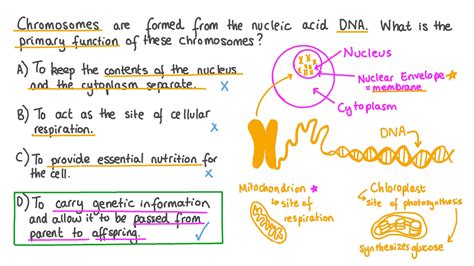 Chromosomes are formed from the nucleic acid DNA. What is the
primary function of these chromosomes?
A) To keep the contents of the nucleus
and the cytoplasm separate. x
B) To act as the site of cellular
respiration. x
C) To provide essential nutrition for
the cell. x
D) To carry genetic information
and allow it to be passed from
parent to offspring. ✓
Nucleus
Nuclear Envelope
= membrane
Cytoplasm
DNA
Mitochondrion
↳ site of
respiration
Chloroplast
↳ site of photosynthesis
Synthesizes glucose